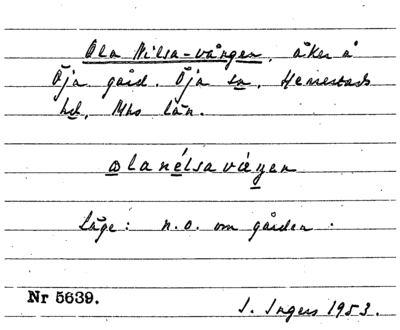 Ola Nilsa-vången, åker å
Öja gård. Öja sn, Herrestads
hd, Mhs län.
olanélsavàŋen
Läge: n.o. om gården.
Nr 5639.
I. Ingers 1953.